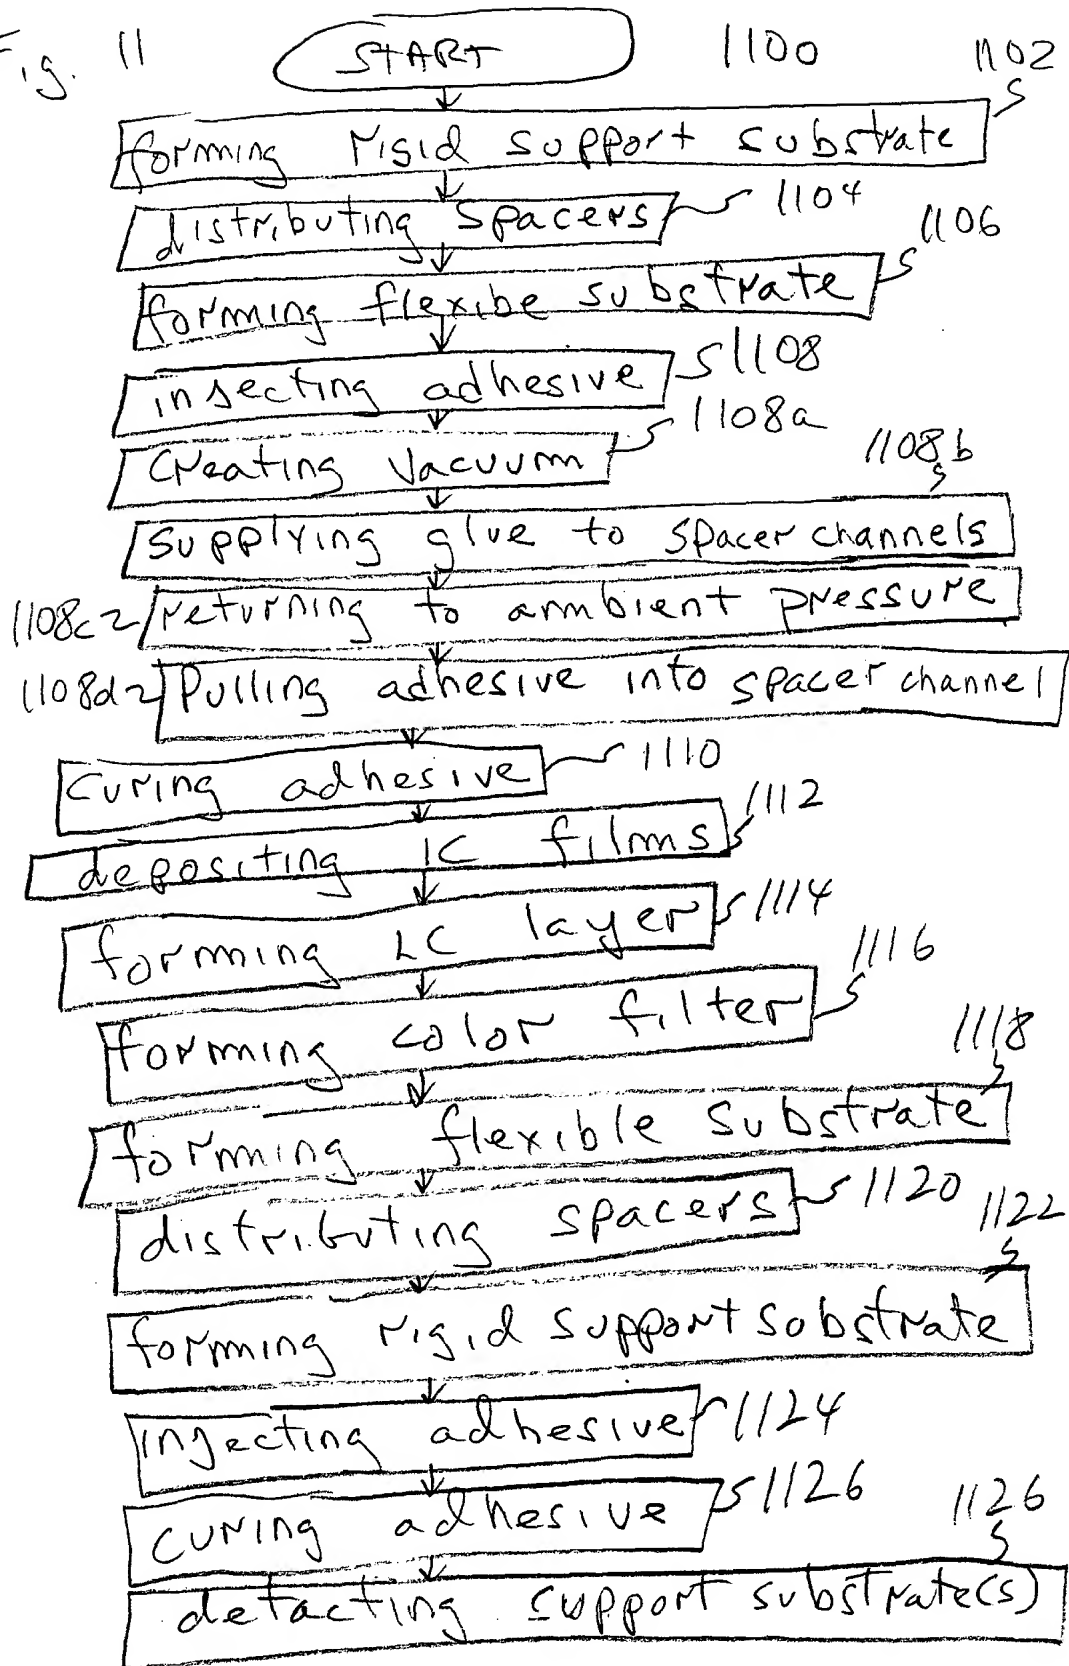 Fig. 11 START 1100 1102
forming rigid support substrate
distributing spacers 1104
1106
forming flexibe substrate
insecting adhesive 1108
1108a
creating vacuum
1108b
supplying glue to spacer channels
1108c returning to ambient pressure
1108d pulling adhesive into spacer channel
curing adhesive 1110
depositing IC films 1112
forming LC layer 1114
1116
forming color filter
1118
forming flexible substrate
distributing spacers 1120
1122
forming rigid support substrate
injecting adhesive 1124
curing adhesive 1126
1126
detacting support substrate(s)